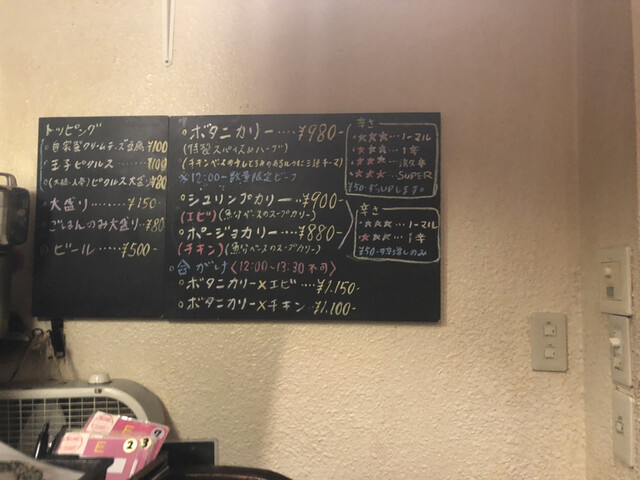 トッピング
自家製クリームチーズ豆腐 ¥100
玉子ピクルス ...... ¥100
ピクルス大盛 ¥80
大盛り ...... ¥150-
ごはんのみ大盛り ...¥80
ビール ...... ¥500-
ボタニカリー .... ¥980-
(特製スパイス&ハーブ)
※12:00~数量限定ビーフ
シュリンプカリー ... ¥900-
(エビ)(魚介ベースのスープカリー)
ポージョカリー .... ¥880-
(チキン)(魚介ベースのスープカリー)
合がけ〈12:00~13:30不可〉
ボタニカリー×エビ .... ¥1.150-
ボタニカリー×チキン ... ¥1.100-
辛さ
★★★...ノーマル
★★★... 1辛
★★★... 激辛
★★★... SUPER
¥50-ずつUPします。
辛さ
★★★...ノーマル
★★★... 1辛
¥50-
E
2
3